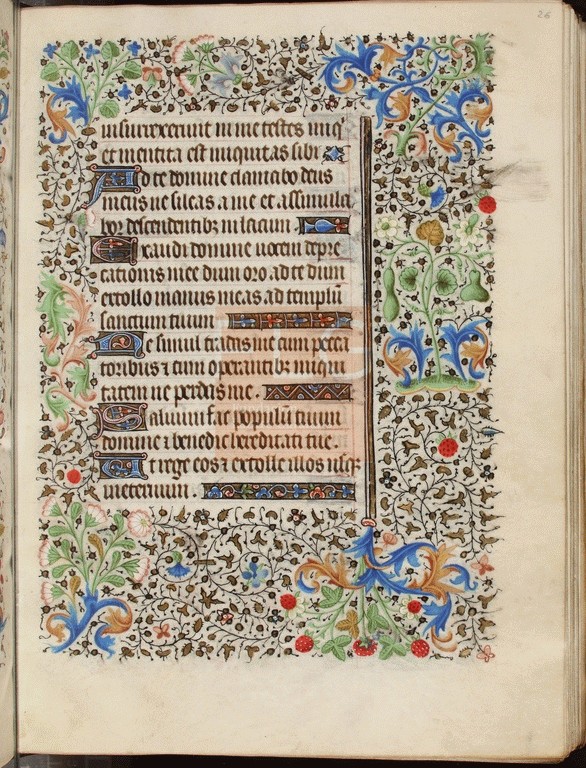 26
insurrexerunt in me testes iniq'
et mentita est iniquitas sibi
Ad te domine clamabo deus
meus ne sileas a me et assimila
bor descendentibz in lacum
Exaudi domine vocem depre
cationis mee dum oro ad te dum
extollo manus meas ad templū
sanctum tuum
Ne simul tradas me cum pecca
toribus ⁊ cum operantibz iniqui
tatem ne perdas me.
Saluum fac populū tuum
domine ⁊ benedic hereditati tue.
Et rege eos ⁊ extolle illos usq̄
in eternum.